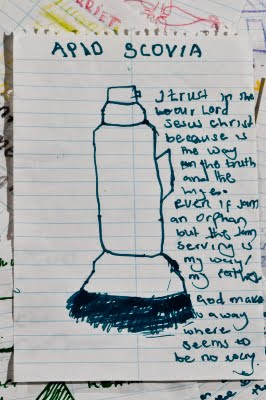 APIO SCOVIA
I trust in the
our Lord
Jesus Christ
because is
the way
the truth
and the
lives.
Even if I am
an orphan
but the I am
serving is
my way/
my father
God make
a way
where
seems to
be no way.